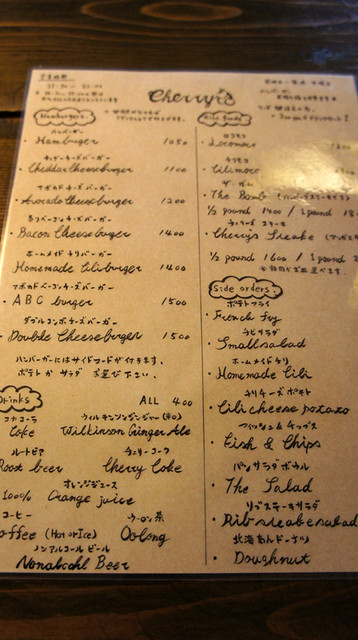 Cherry's
Hamburgers
ハンバーガー
・Hamburger 1050
チェダーチーズバーガー
・Cheddar Cheese burger 1100
アボカドチーズバーガー
・Avocado Cheese burger 1200
ベーコンチーズバーガー
・Bacon Cheese burger 1400
ホームメイド チリバーガー
Homemade Cili burger 1400
アボカドベーコンチーズバーガー
・ABC burger 1500
ダブルコンボチーズバーガー
・Double Cheese burger 1500
ハンバーガーにはサイドフードが付きます。
ポテト か サラダ お選び下さい。
Drinks ALL 400
コカコーラ ウィルキンソンジンジャー(辛口)
Coke Wilkinson Ginger Ale
ルートビア チェリーコーク
Root beer Cherry Coke
オレンジジュース
100% Orange juice
コーヒー ウーロン茶
Coffee (Hot or Ice) Oolong
ノンアルコール ビール
Nonalcohl Beer
ロコモコ
・Locomoco
チリモコ
・Cilimoco
ザ・ボム
・The Bomb
1/2 pound 1400 / 1 pound
・Cherry's Steake
1/2 pound 1600 / 1 pound
Side orders
ポテトフライ
・French fry
ラビサラダ
・Small salad
ホームメイドチリ
・Homemade Cili
チリチーズポテト
・Cili cheese potato
フィッシュ & チップス
・Fish & Chips
パンサラダボウル
・The Salad
リブステーキサラダ
・Rib steake salad
北海あんドーナツ
・Doughnut